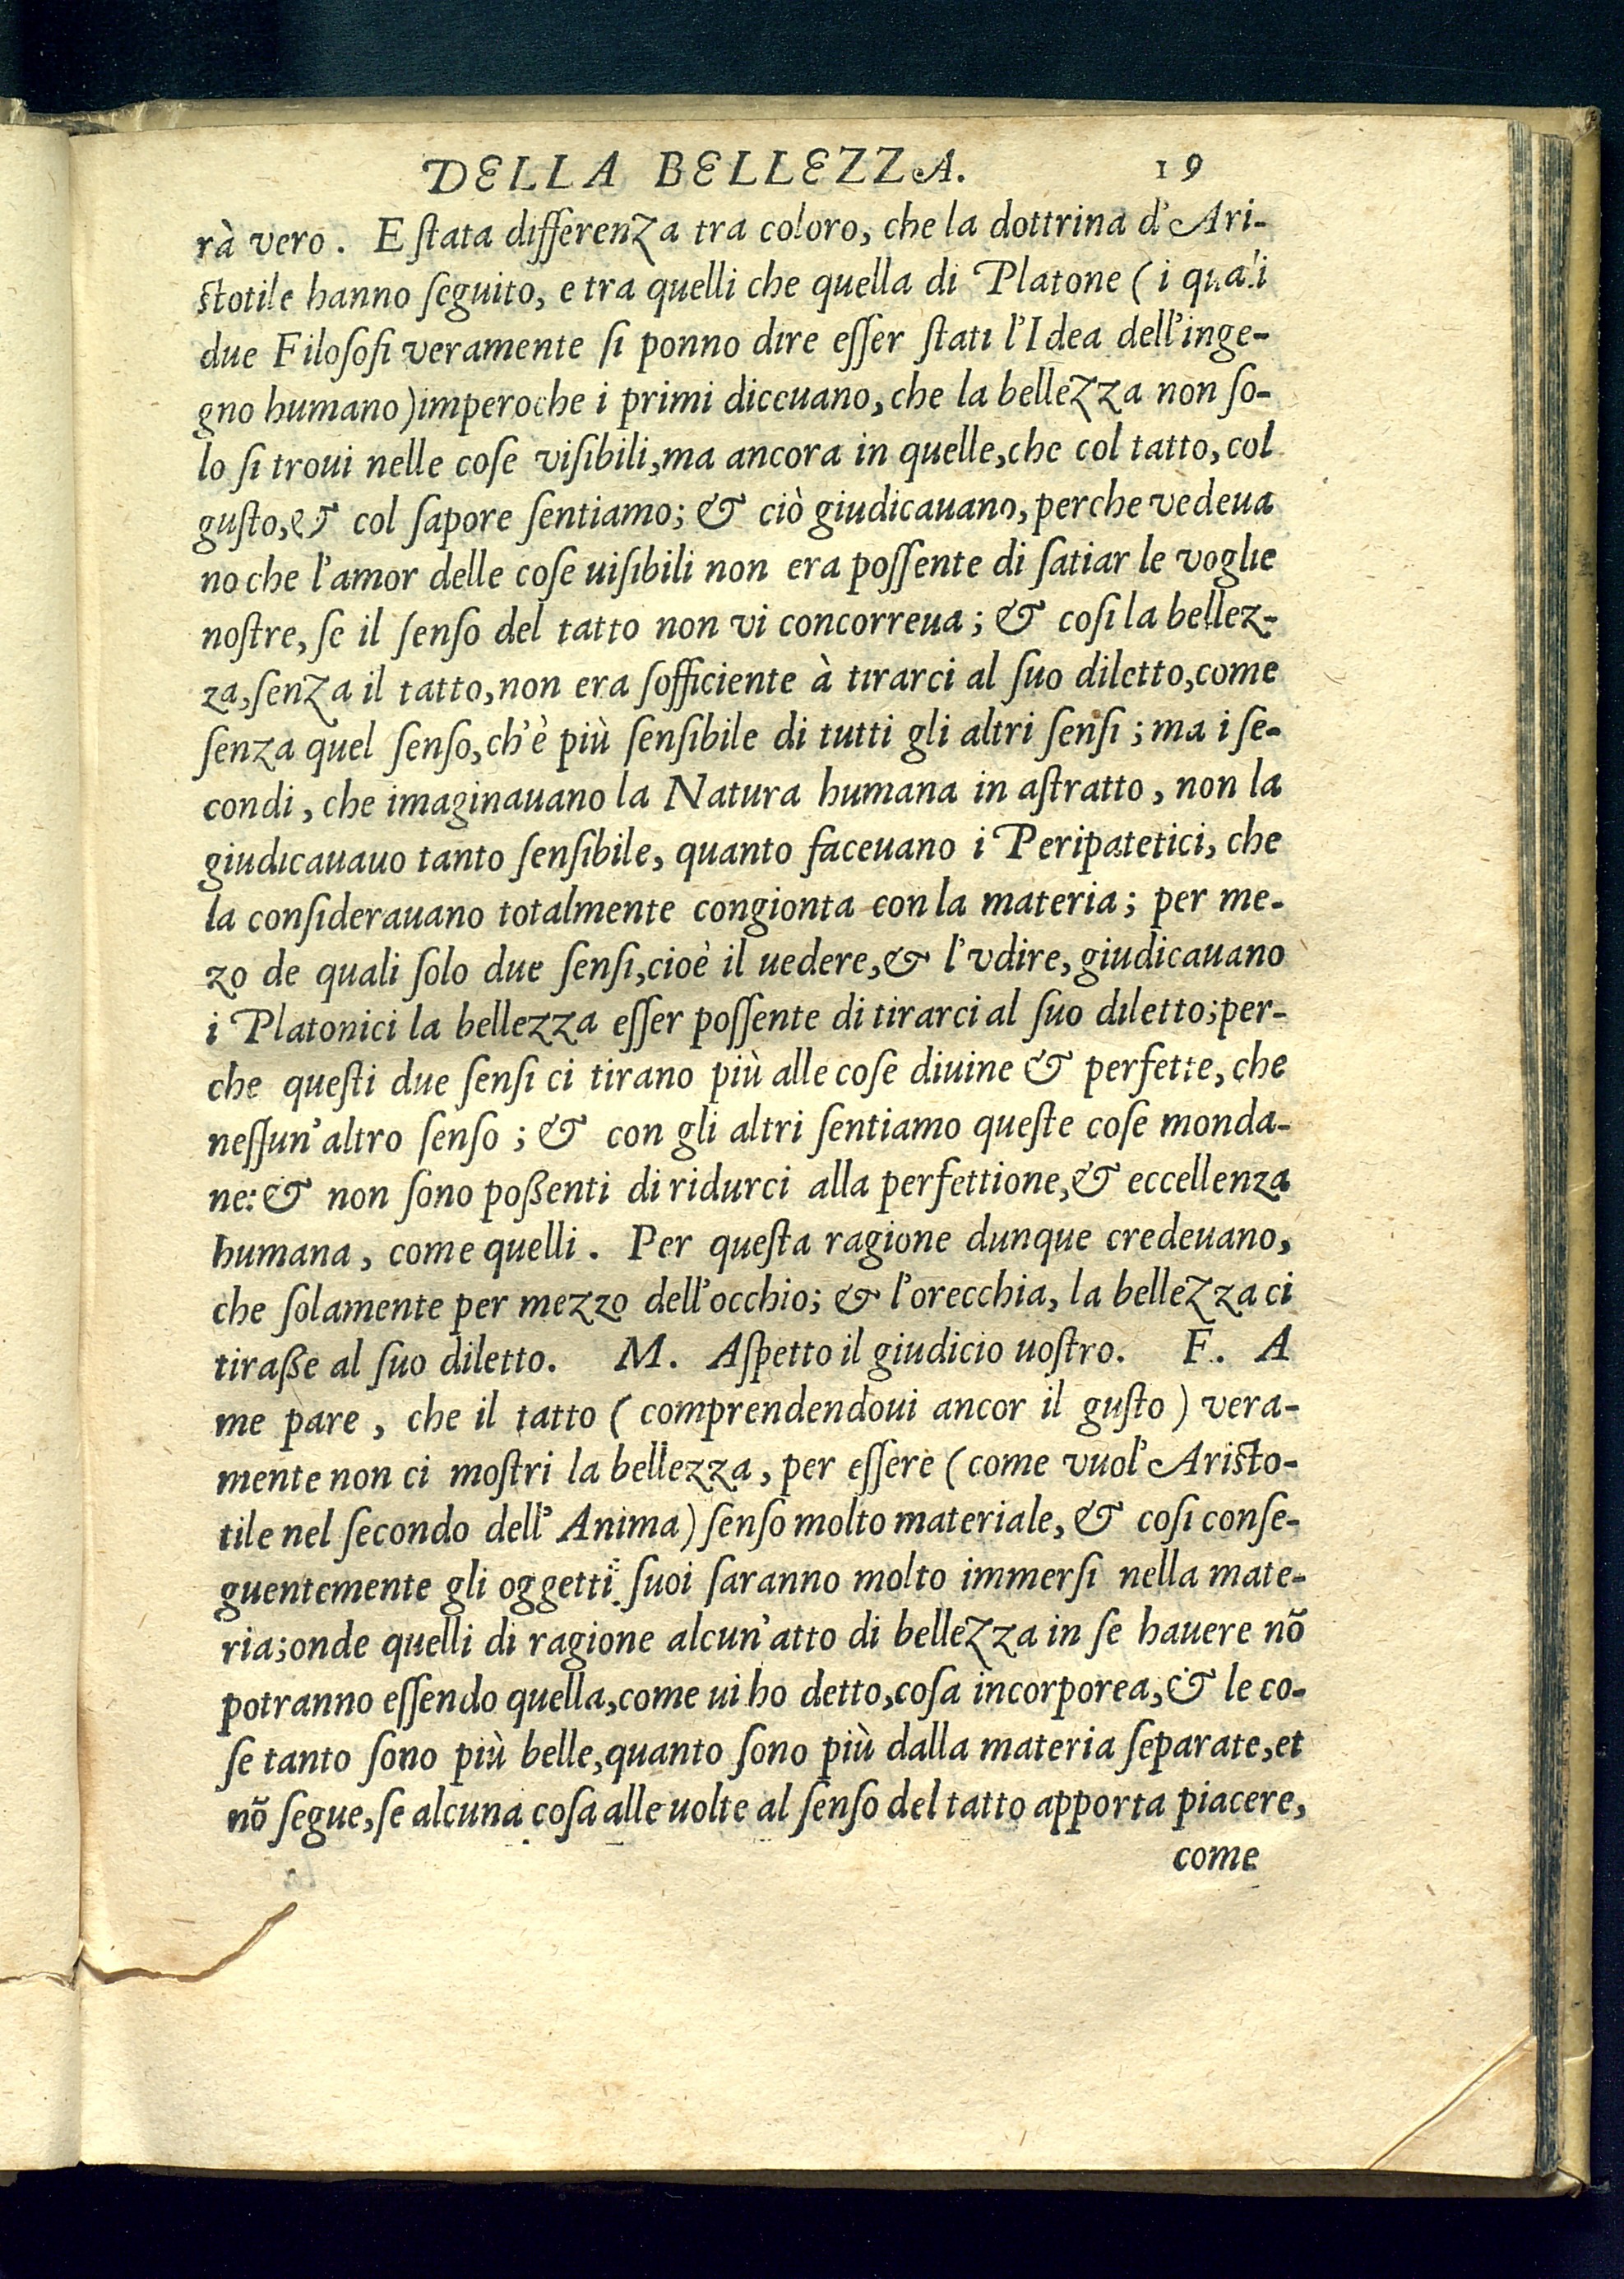 DELLA BELLEZZA. 19
rà vero. E ſtata differenza tra coloro, che la dottrina d'Ari-
ſtotile hanno ſeguito, e tra quelli che quella di Platone (i quali
due Filoſofi veramente ſi ponno dire eſſer ſtati l'Idea dell'inge-
gno humano) imperoche i primi diceuano, che la bellezza non ſo-
lo ſi troui nelle coſe viſibili, ma ancora in quelle, che col tatto, col
guſto, & col ſapore ſentiamo; & ciò giudicauano, perche vedeua
no che l'amor delle coſe uiſibili non era poſſente di ſatiar le voglie
noſtre, ſe il ſenſo del tatto non vi concorreua; & coſi la bellez-
za, ſenza il tatto, non era ſofficiente à tirarci al ſuo diletto, come
ſenza quel ſenſo, ch'è più ſenſibile di tutti gli altri ſenſi; ma i ſe-
condi, che imaginauano la Natura humana in aſtratto, non la
giudicauauo tanto ſenſibile, quanto faceuano i Peripatetici, che
la conſiderauano totalmente congionta con la materia; per me-
zo de quali ſolo due ſenſi, cioè il uedere, & l'vdire, giudicauano
i Platonici la bellezza eſſer poſſente di tirarci al ſuo diletto; per-
che queſti due ſenſi ci tirano più alle coſe diuine & perfette, che
neſſun'altro ſenſo; & con gli altri ſentiamo queſte coſe monda-
ne: & non ſono poßenti di ridurci alla perfettione, & eccellenza
humana, come quelli. Per queſta ragione dunque credeuano,
che ſolamente per mezzo dell'occhio; & l'orecchia, la bellezza ci
tiraße al ſuo diletto. M. Aſpetto il giudicio uoſtro. F. A
me pare, che il tatto (comprendendoui ancor il guſto) vera-
mente non ci moſtri la bellezza, per eſſere (come vuol'Ariſto-
tile nel ſecondo dell'Anima) ſenſo molto materiale, & coſi conſe-
guentemente gli oggetti ſuoi ſaranno molto immerſi nella mate-
ria; onde quelli di ragione alcun'atto di bellezza in ſe hauere nõ
potranno eſſendo quella, come ui ho detto, coſa incorporea, & le co-
ſe tanto ſono più belle, quanto ſono più dalla materia ſeparate, et
nõ ſegue, ſe alcuna coſa alle uolte al ſenſo del tatto apporta piacere,
come